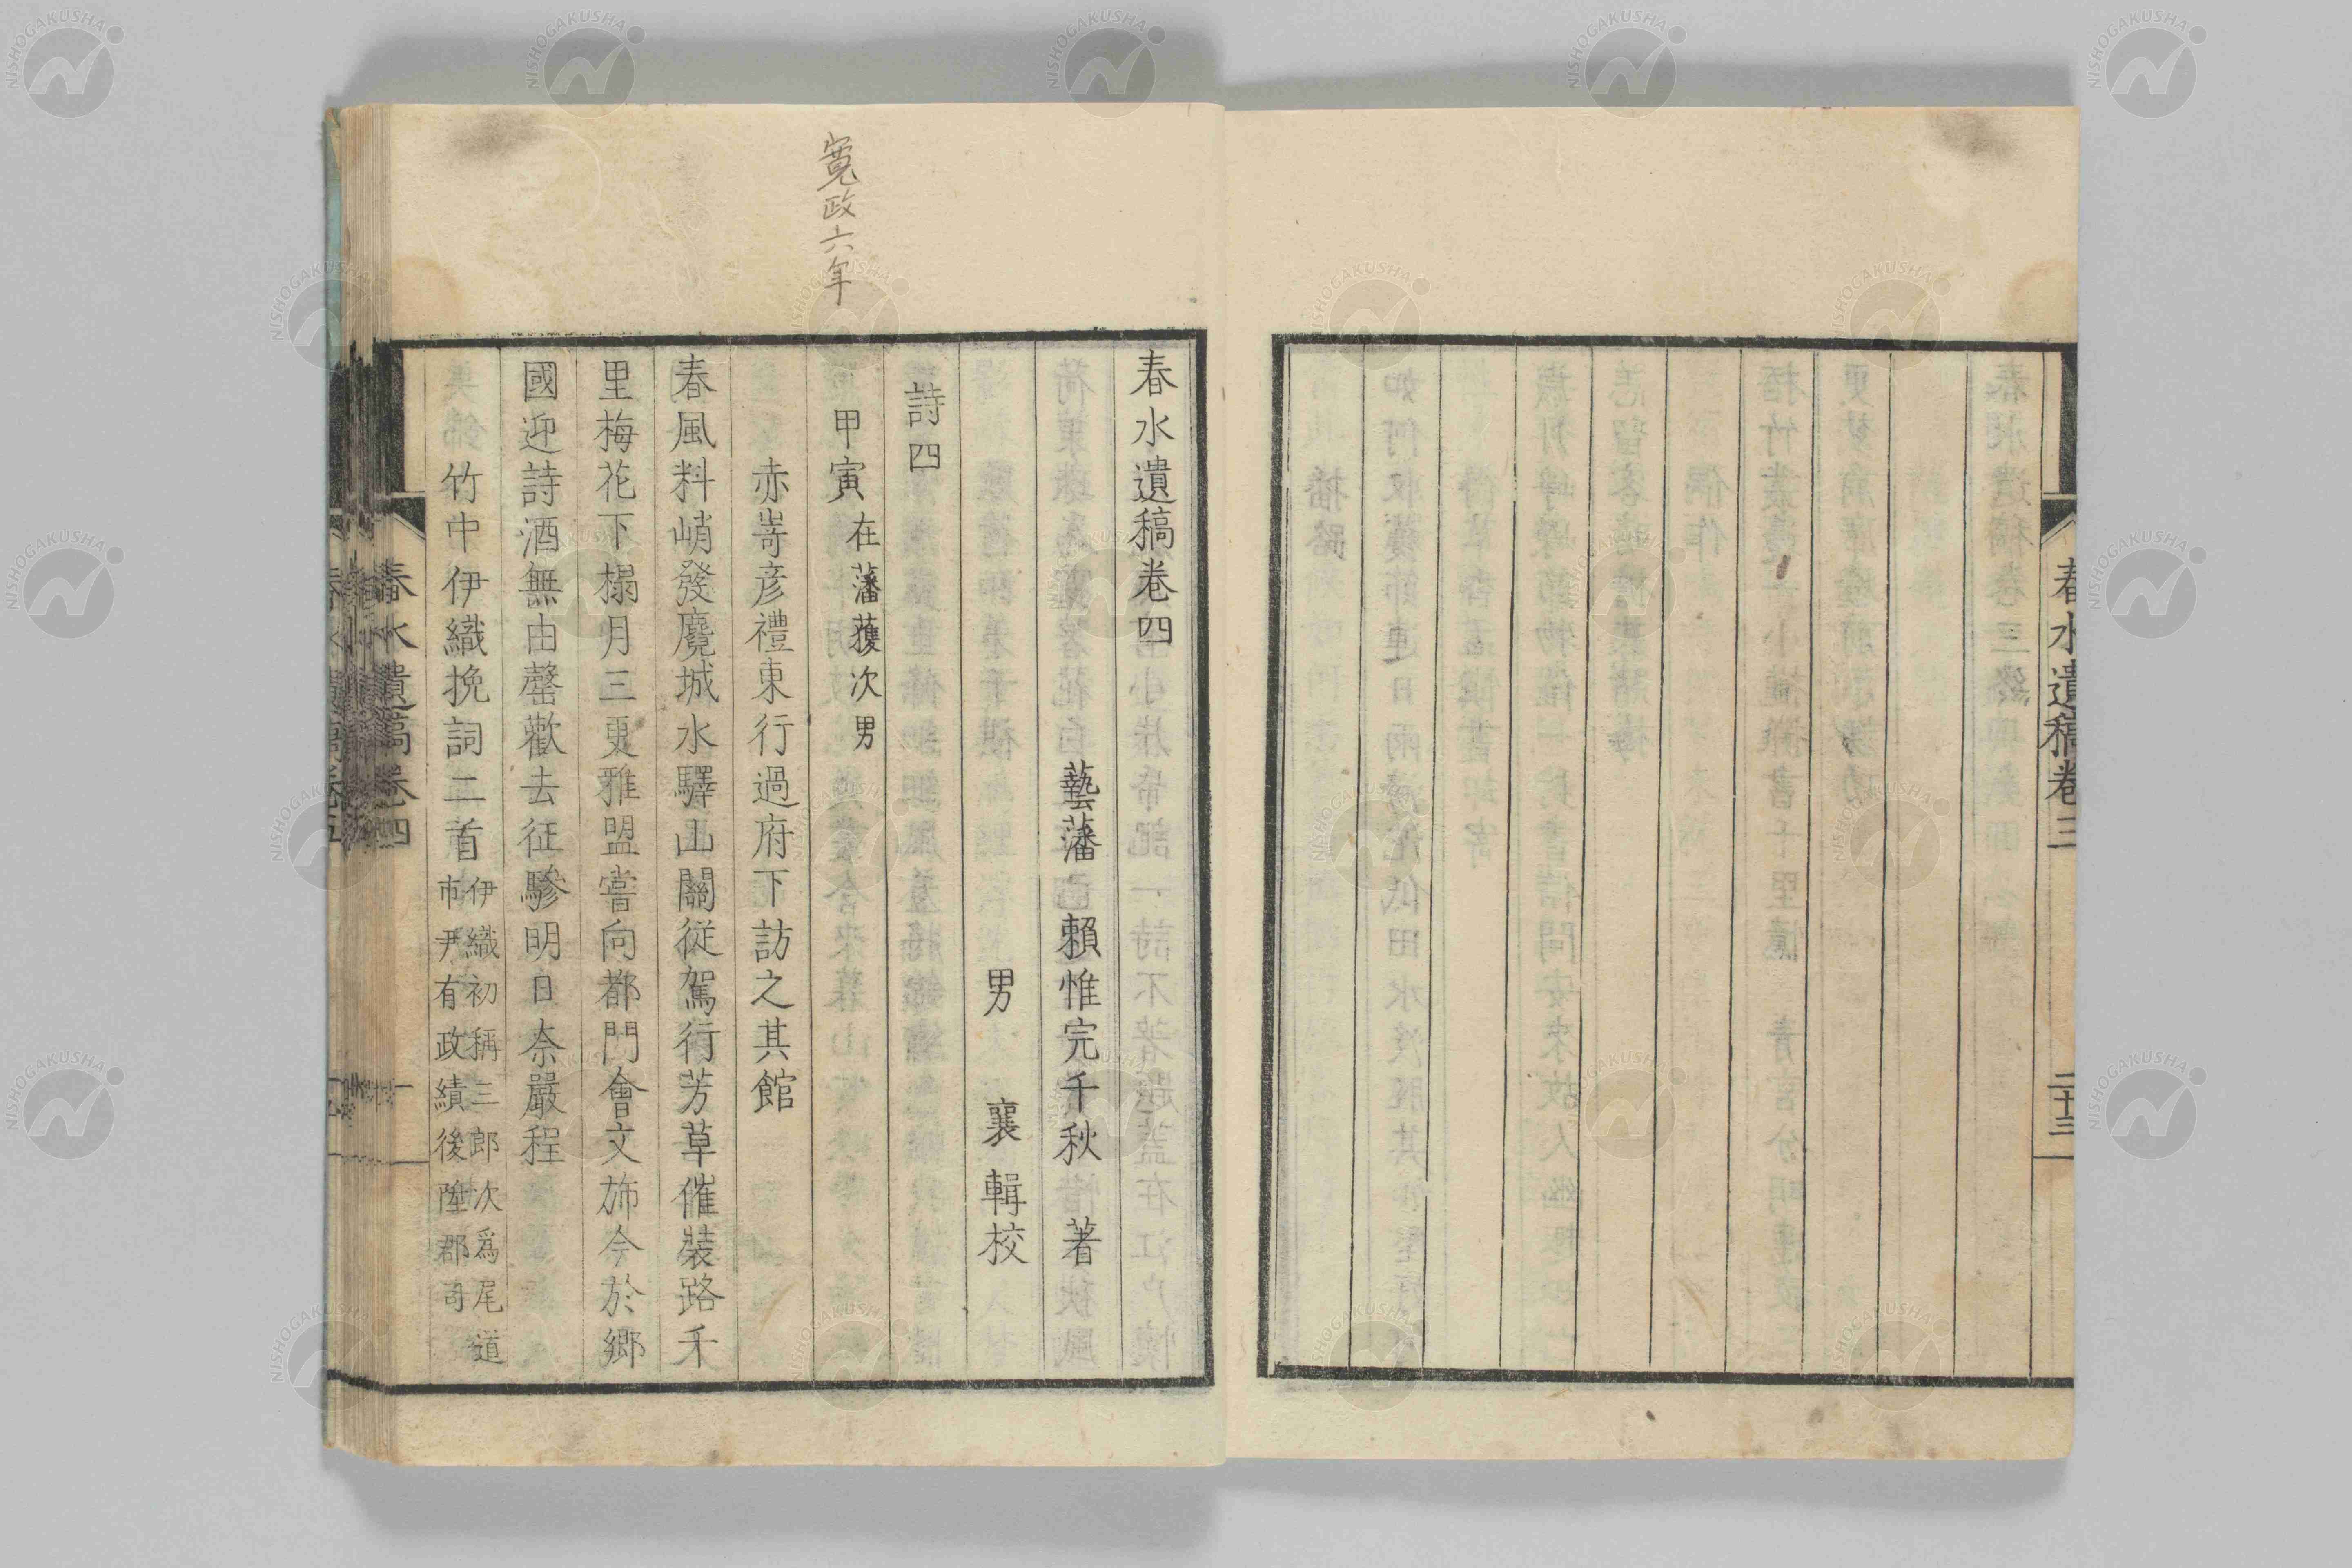 春水遺稿卷三
二十三
寛政六年
春水遺稿卷四
藝藩 賴惟完千秋 著
男 襄 輯校
詩四
甲寅 在藩獲次男
赤嵜彦禮東行過府下訪之其館
春風料峭發麑城水驛山關從駕行芳草催裝路千
里梅花下榻月三更雅盟嘗向都門會文旆今於鄉
國迎詩酒無由罄歡去征驂明日奈嚴程
竹中伊織挽詞二首 伊織初稱三郎次爲尾道
市尹有政績後陞郡司
春水遺稿卷四
一
NISHOGAKUSHA